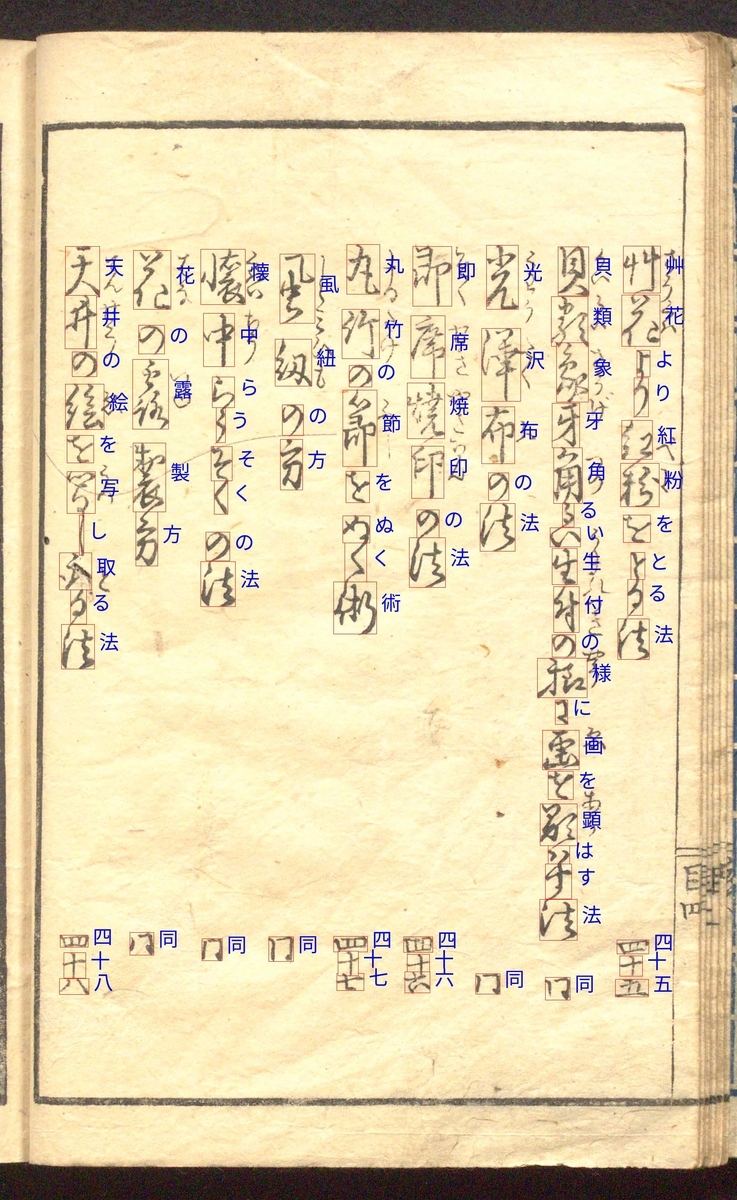 艸花より紅粉をとる法 四十五
貝類象牙角るい生付の様に画を顕はす法 同
光沢布の法 同
即席焼印の法 四十六
丸竹の節をぬく術 四十七
風紐の方 同
懐中らうそくの法 同
花の露製方 同
天井の絵を写し取る法 四十八
目四